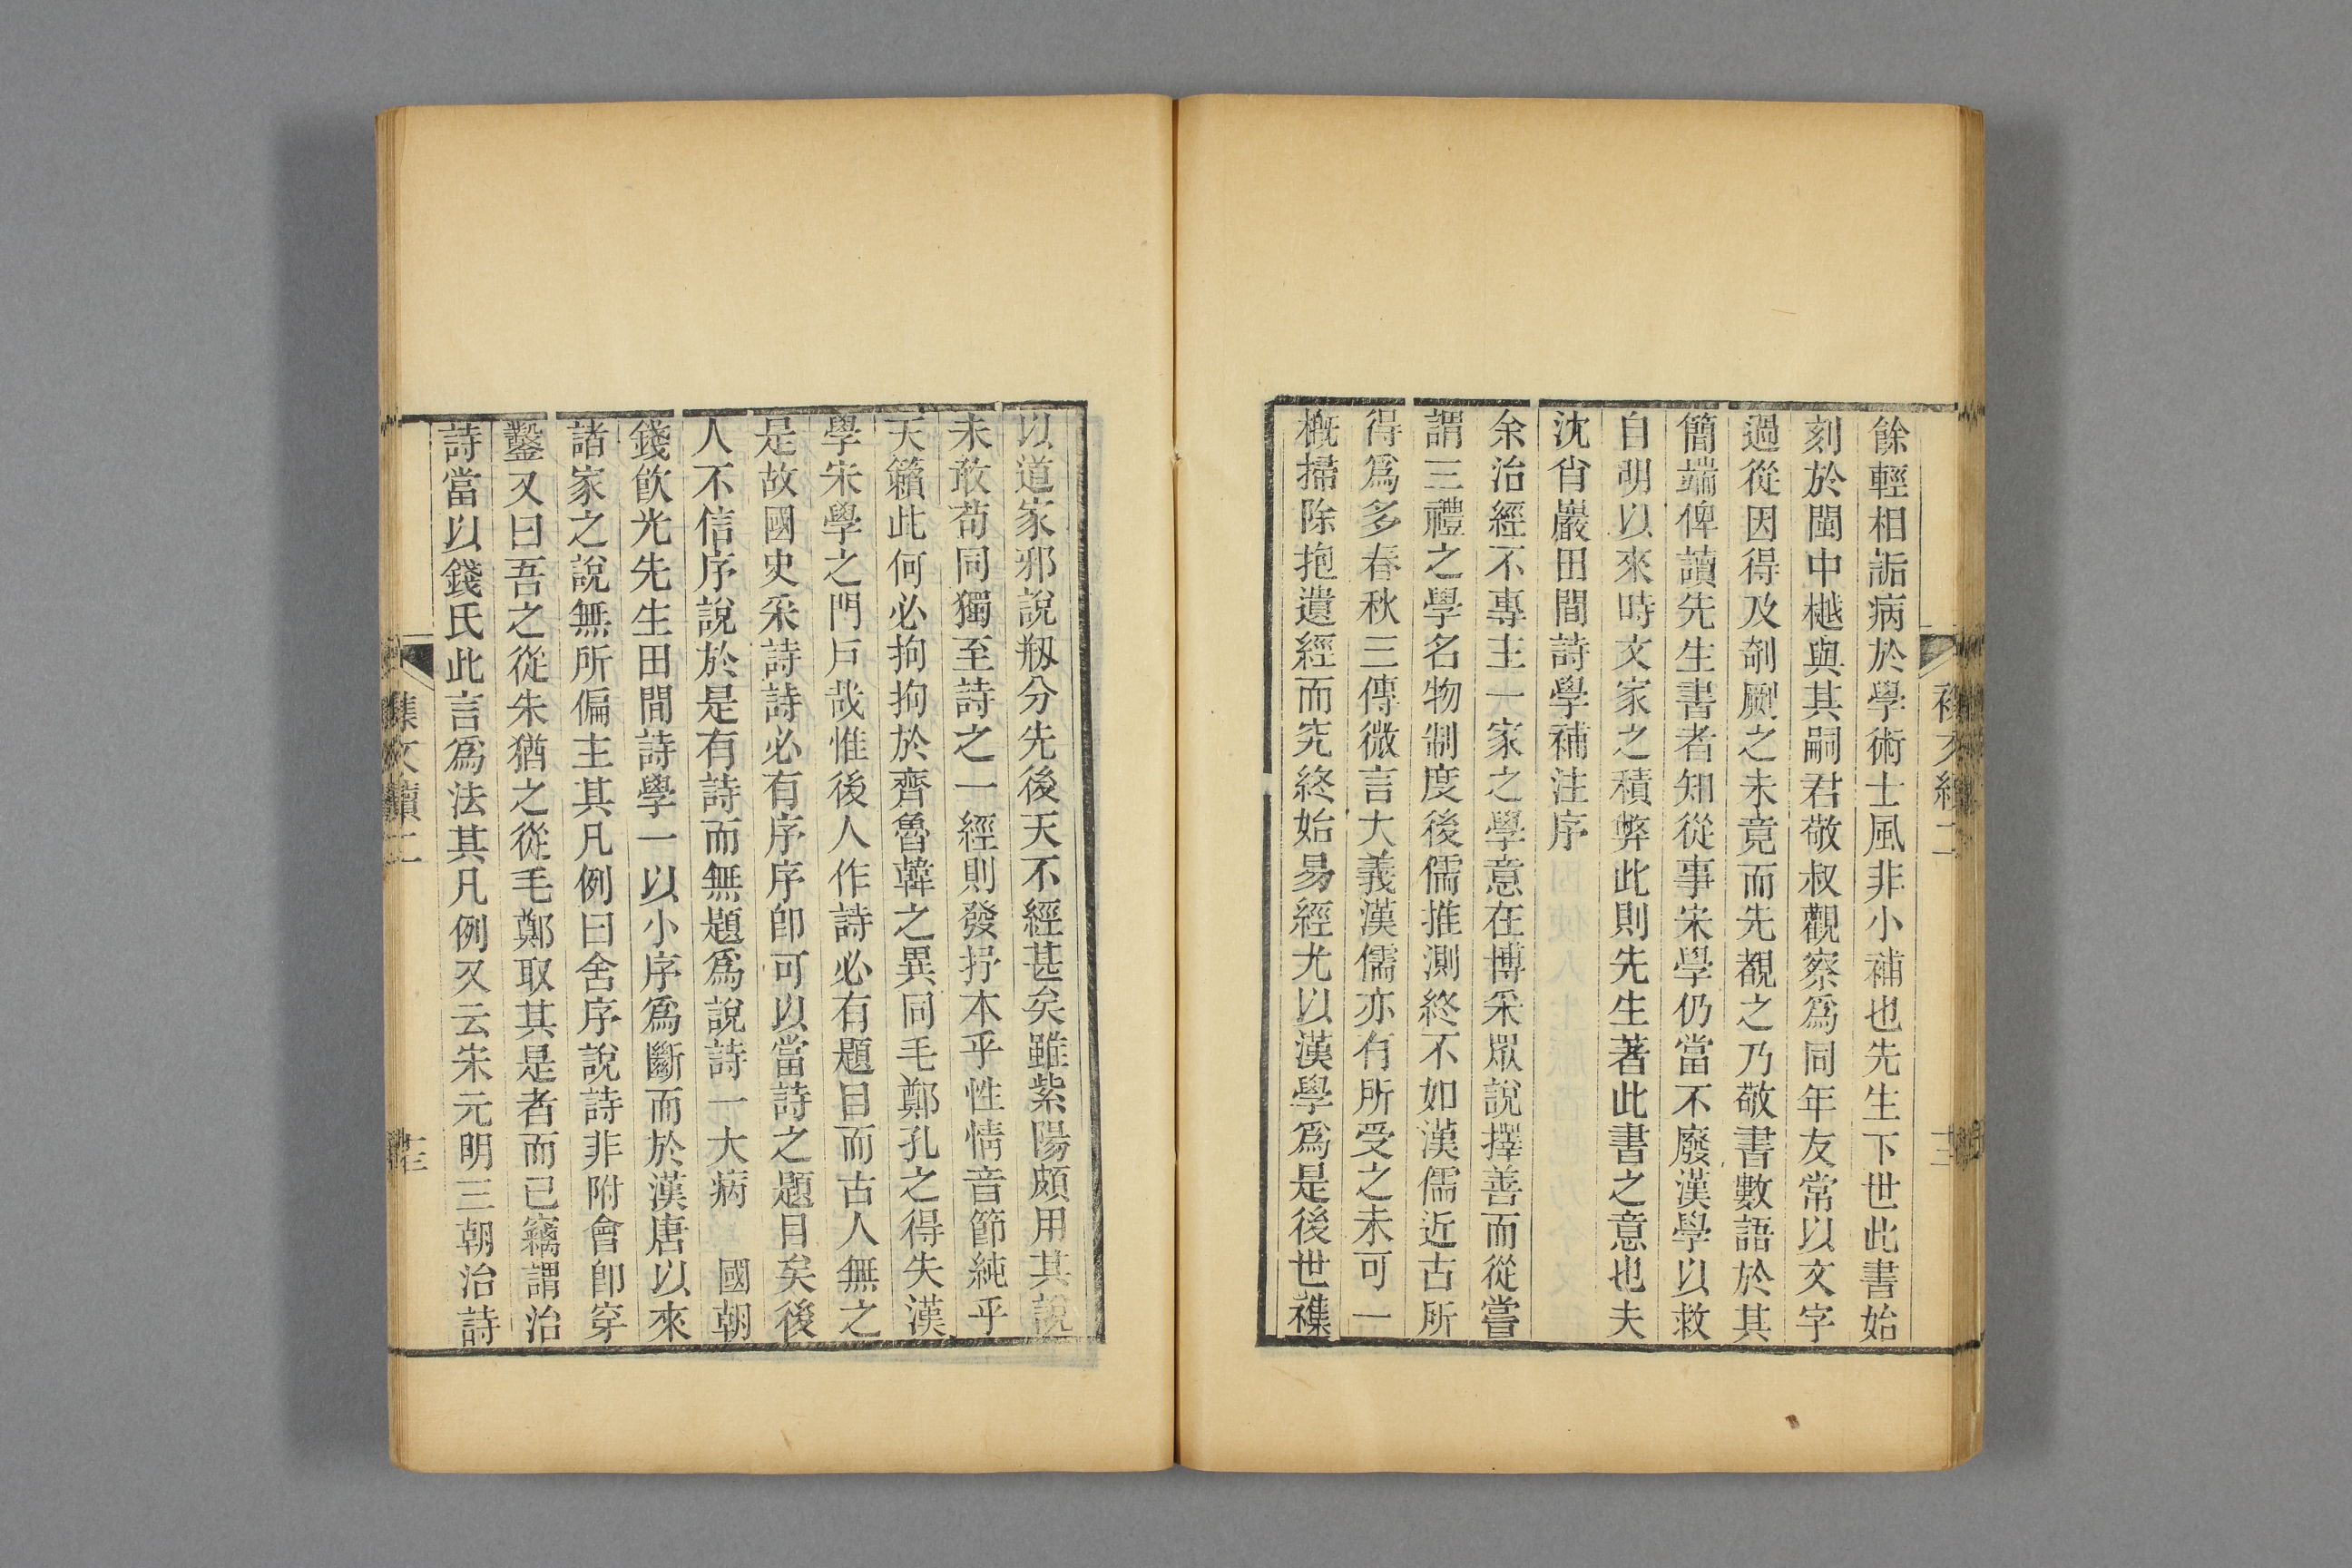 餘輕相詬病於學術士風非小補也先生下世此書始
刻於閩中樾與其嗣君敬叔觀察爲同年友常以文字
過從因得及剞劂之未竟而先覩之乃敬書數語於其
簡端俾讀先生書者知從事宋學仍當不廢漢學以救
自明以來時文家之積弊此則先生著此書之意也夫
沈肖巖田間詩學補注序
余治經不專主一家之學意在博采眾說擇善而從嘗
謂三禮之學名物制度後儒推測終不如漢儒近古所
得爲多春秋三傳微言大義漢儒亦有所受之未可一
概掃除抱遺經而究終始易經尤以漢學爲是後世襍
以道家邪說剏分先後天不經甚矣雖紫陽頗用其說
未敢苟同獨至詩之一經則發抒本乎性情音節純乎
天籟此何必拘拘於齊魯韓之異同毛鄭孔之得失漢
學宋學之門戶哉惟後人作詩必有題目而古人無之
是故國史采詩詩必有序序卽可以當詩之題目矣後
人不信序說於是有詩而無題爲說詩一大病　國朝
錢飲光先生田間詩學一以小序爲斷而於漢唐以來
諸家之說無所偏主其凡例曰舍序說詩非附會卽穿
鑿又曰吾之從朱猶之從毛鄭取其是者而已竊謂治
詩當以錢氏此言爲法其凡例又云宋元明三朝治詩
集文續二